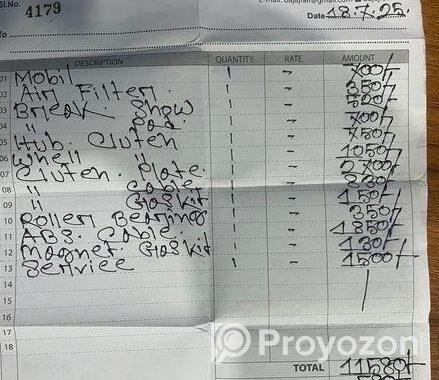 Sl.No. 4179
Date 18.7.25.
To
DESCRIPTION QUANTITY RATE AMOUNT
01 Mobil 1 - 700/-
02 Air Filter. 1 - 350/-
03 Break Show 1 - 500/-
04 " Pad. 1 - 700/-
05 Hub. Cluten 1 - 750/-
06 Whell " 1 - 1050/-
07 Cluten. Plate 1 - 2700/-
08 " Cable 1 -
09 " Gaskit 1 - 150/-
10 Roller Bearing 1 - 350/-
11 ABS. Cable 1 - 1850/-
12 Magnet. Gaskit 1 - 130/-
13 Service 1 - 1500/-
14
15
16
17
18
Proyozoni
TOTAL 11580/-